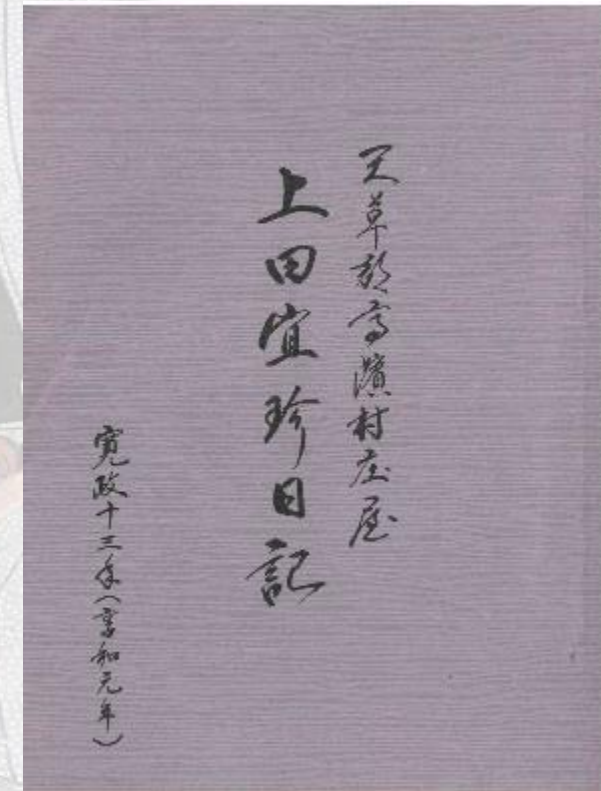 天草郡高濱村庄屋
上田宜珍日記
寛政十三年(享和元年)